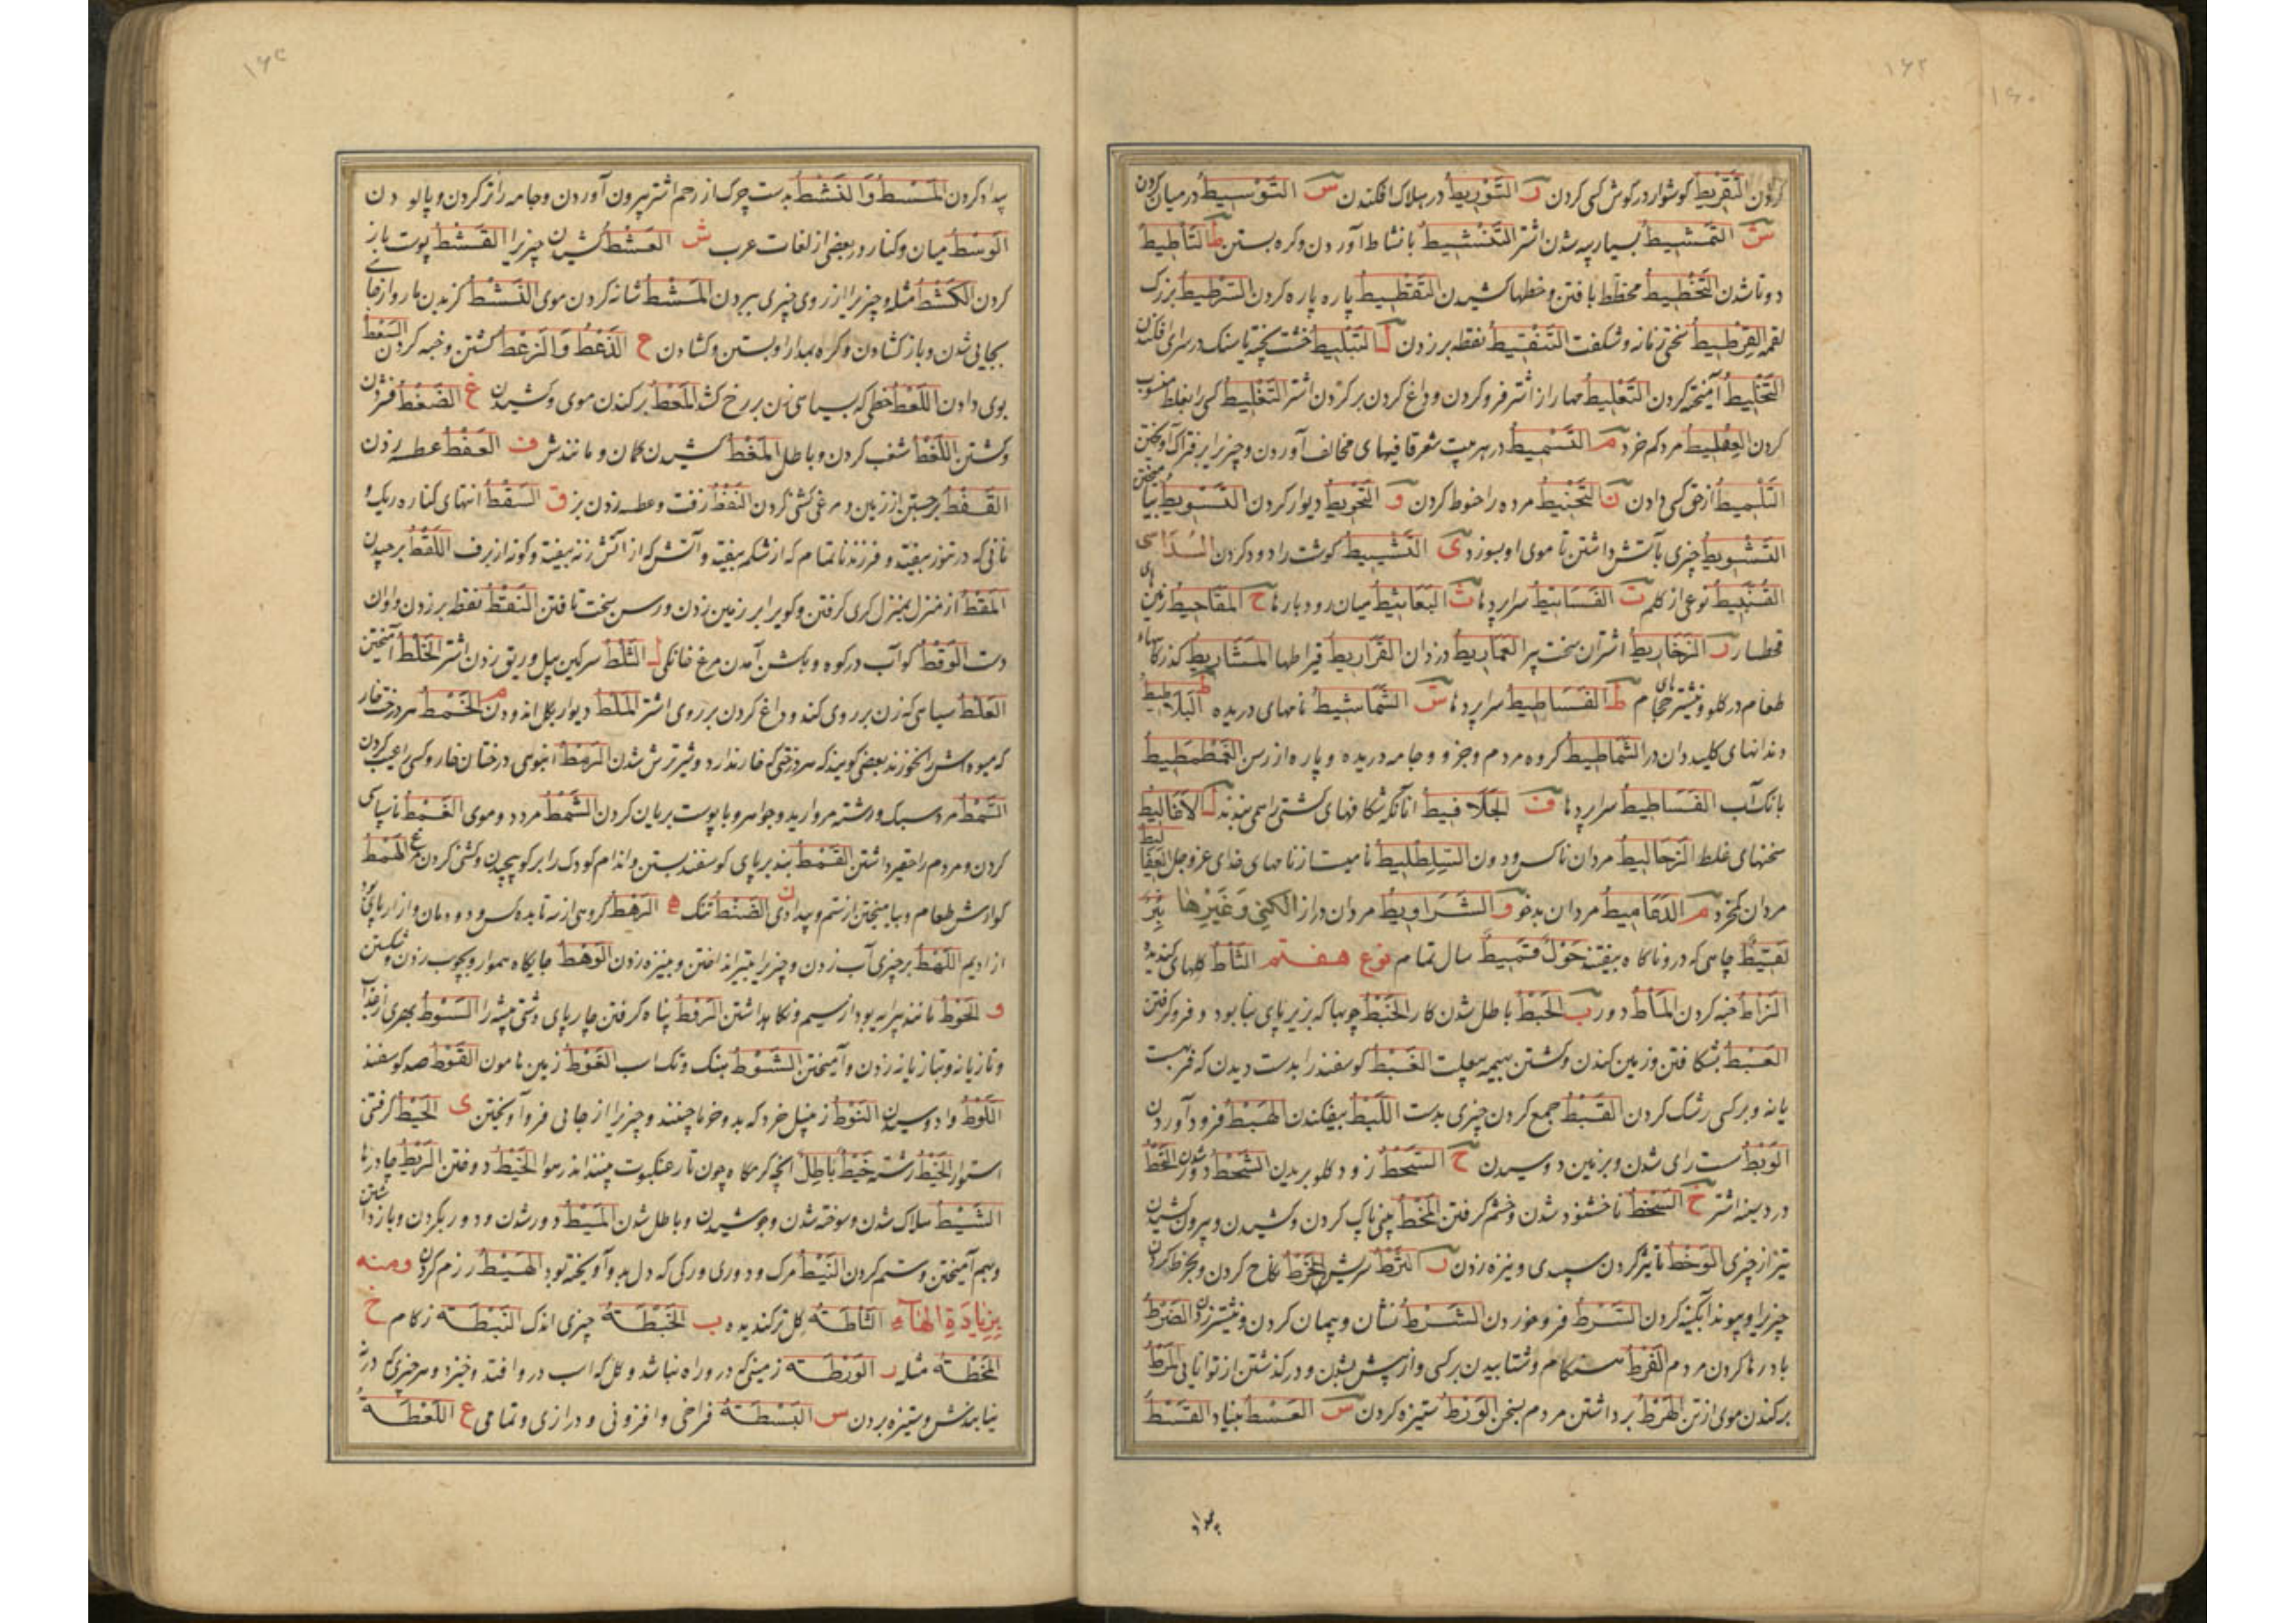 ۱۶۲
۱۶۰
کردن التقریط کوشوار در کوش کسی کردن ر التوریط در هلاک افکندن س التوسیط در میان کردن
ش التمشیط بسیار پیه شدن اشتر التنشیط با نشاط آوردن و کره بستن ط التأطیط
دوتا شدن التخطیط مخطط بافتن و خطها کشیدن التقطیط پاره پاره کردن السرطیط بزرک
لقمه القرطیط سختی زمانه و شکفت التنقیط نقطه بر زدن ل التبلیط خشت پخته یا سنک در سرای افکندن
التخلیط آمیخته کردن التعلیط مهار از اشتر فرو کردن و داغ کردن بر کردن اشتر التغلیط کسی را بغلط منسوب
کردن العفلیط مردکم خرد م التسمیط در هر بیت شعر قافیهای مخالف آوردن و چیزی را بر فتراک آویختن
التلمیط از حق کسی دادن ن التحنیط مرده را حنوط کردن و التحویط دیوار کردن التسویط بیامیختن
التشویط چیزی بآتش داشتن تا موی او بسوزد ی التشییط کوشت را دود کردن السداسی
القنبیط نوعی از کلم ت الفساتیط سراپردها ث البعاثیط میان رودبارها ح المقاحیط زمین های
قحطسار ر الزخاریط اشتران سخت پیر العماریط دزدان القراریط قیراطها المشاریط کذرکاه
طعام در کلو و نیشترهای حجام ط الفساطیط سراپردها ش الشماشیط نامهای دریده البلاطیط
دندانهای کلیددان در الشماطیط کروه مردم و جز و جامه دریده و پاره از رسن الغطمطیط
بانک آب الفساطیط سراپردها ف الجلافیط آنانکه شکافهای کشتی را همی بندند ل الاغالیط
سخنهای غلط الزحالیط مردان ناکس و دون السلطلیط نامیست از نامهای خدای عز و جل العفالیط
مردان کم خرد م الدعامیط مردان بدخو و الشراویط مردان دراز الکنی وغیرها بئر
لقیط چاهی که درو ناکاه بیفتند حول قمیط سال تمام نوع هفتم الثأط کلهای کندیده
الزأط خبه کردن المأط دور ب الحبط باطل شدن کار الخبط چوبها که بزیر پای بنا بود و فرو کرفتن
العبط بشکافتن و زمین کندن و کشتن بهیمه بی علت الغبط کوسفند را بدست دیدن که فربه است
یا نه و بر کسی رشک کردن القبط جمع کردن چیزی بدست اللبط بیفکندن الهبط فرود آوردن
الوبط سست رای شدن و بر زمین دوسیدن ح السحط زود کلو بریدن الشحط دور شدن القحط
در د سینه اشتر خ السخط ناخشنود شدن و خشم کرفتن المخط بینی پاک کردن و کشیدن و بیرون کشیدن
تیز از چیزی الوخط تأثیر کردن سپیدی و نیزه زدن ر الثرط سریش الخرط نکاح کردن و بخرط کردن
چیزی را و پیوند آبکینه کردن السرط فرو خوردن الشرط نشان و پیمان کردن و نیشتر زدن الضرط
باد رها کردن مردم الفرط هنکام و شتابیدن بر کسی و از پیش بشدن و در کذشتن از توانایی المرط
برکندن موی از تن الهرط برداشتن مردم بسخن الورط ستیزه کردن س العسط بنیاد القسط
۱۶۴
بیداد کردن المسط والنشط بدست چرک از رحم اشتر بیرون آوردن و جامه را تر کردن و پالودن
الوسط میان و کنار در بعضی از لغات عرب ش العشط کشیدن چیزی را القشط پوست باز
کردن الکشط مثله و چیزی را از روی چیزی ببردن المشط شانه کردن موی النشط کزیدن مار و از جای
بجایی شدن و باز کشادن و کره بمدارا و بستن و کشادن ح الذعط والزعط کشتن و خبه کردن السعط
بوی دادن اللعط خطی که بسیاهی زن بر رخ کشد المعط برکندن موی و کشیدن غ الضغط فشردن
و کشتن اللغط شغب کردن و باطل المغط کشیدن کمان و مانندش ف العفط عطسه زدن
القفط برجستن از زمین و مرغی کشی کردن النفط زفت و عطسه زدن بز ق السقط انتهای کناره ریک و
نانی که در تنور بیفتد و فرزند ناتمام که از شکم بیفتد و آتش که از آتش زنه بیفتد و کونه از برف اللقط برچیدن
المقط از منزل بمنزل کری کرفتن و کوی را بر زمین زدن و رسن سخت تافتن النقط نقطه بر زدن
دست الوقط کو آب در کوه و بکشن آمدن مرغ خانکی ل الثلط سرکین پیل و ریق زدن اشتر الخلط آمیختن
العلط سیاهی که زن بر روی کند و داغ کردن بر روی اشتر الملط دیوار بکل اندودن م الخمط هر درخت خار
که میوه اش را بخورند بعضی کویند که هر درختی که خار ندارد و شیر ترش شدن الرمط انبوهی درختان خار و کسی را عیب کردن
السمط مرد سبک و رشته مروارید و جواهر و با پوست بریان کردن الشمط مرد دو موی الغمط ناسپاسی
کردن و مردم را حقیر داشتن القمط بند بر پای کوسفند بستن و اندام کودک را بر کو پیچیدن و کشی کردن مرغ الهمط
کوارش طعام و بیامیختن از ستم و بیدادی ن الضنط تنک ه الرهط کروهی از سه تا بده کس و دودمان و ازار پای
از ادیم اللهط بر چیزی آب زدن و چیزی را بتیر انداختن و بنیزه زدن الوهط جایگاه هموار و بچوب زدن و شکستن
و الحوط مانند پیرایه بود از سیم و نکاه داشتن الرفط پناه کرفتن چارپای دشتی بیشه را السوط بهری از عذاب
و تازیانه و بتازیانه زدن و آمیختن الشوط بتک و تک اسب الغوط زمین هامون القوط صد کوسفند
اللوط وا دوسیدن النوط زنبیل خرد که بدو خرما چینند و چیزی را از جایی فرو آویختن ی الحیط کرفتی
استوار الخیط رشته خیط باطل آنچه کرمکاه چون تار عنکبوت بینند اندر هوا الخیط دوختن الریط چادرها
الشیط هلاک شدن و سوخته شدن و جوشیدن و باطل شدن المیط دور شدن و دور بکردن و باز داشتن
و بهم آمیختن و ستم کردن النیط مرک و دوری و رکی که دل بدو آویخته بود الهیط رزم کردن ومنه
بزیادة الهاء الثأطة کل تر کندیده ب الخبطة چیزی اندک النبطة زکام خ
المخطة مثله ر الورطة زمینی که در و راه نباشد و کل که اسب در و افتد و خیزد و هر چیزی که در ش
نیابندش و ستیزه بردن س البسطة فراخی و افزونی و درازی و تمامی ع اللعطة